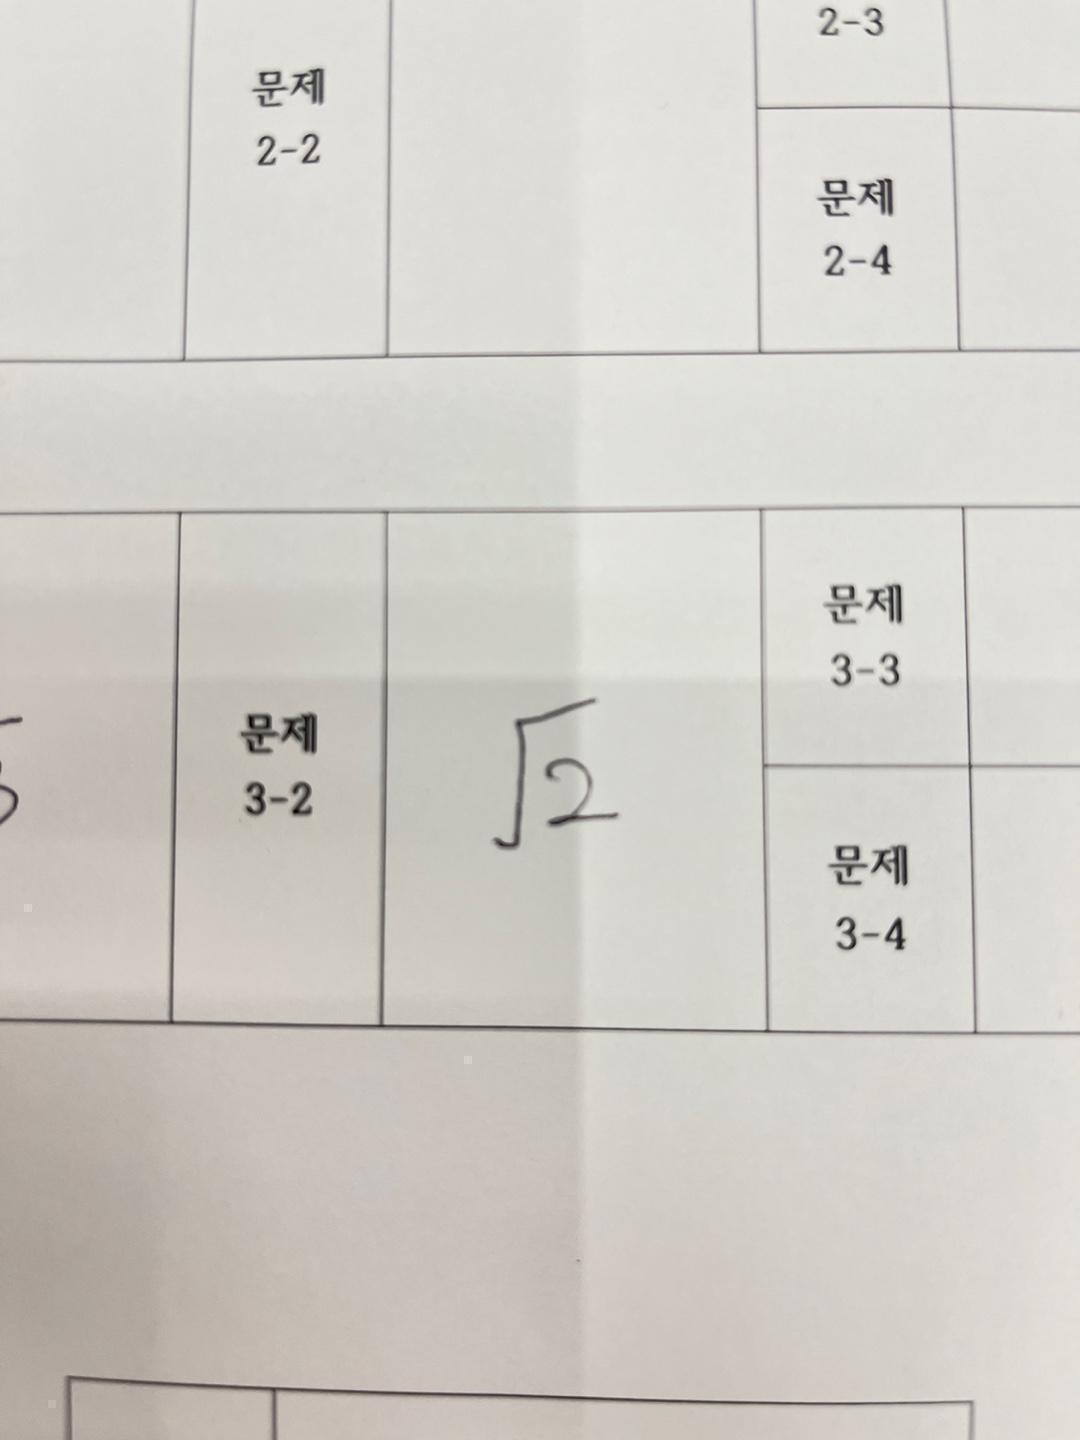 문제
2-2
2-3
문제
2-4
문제
3-2
√2
문제
3-3
문제
3-4